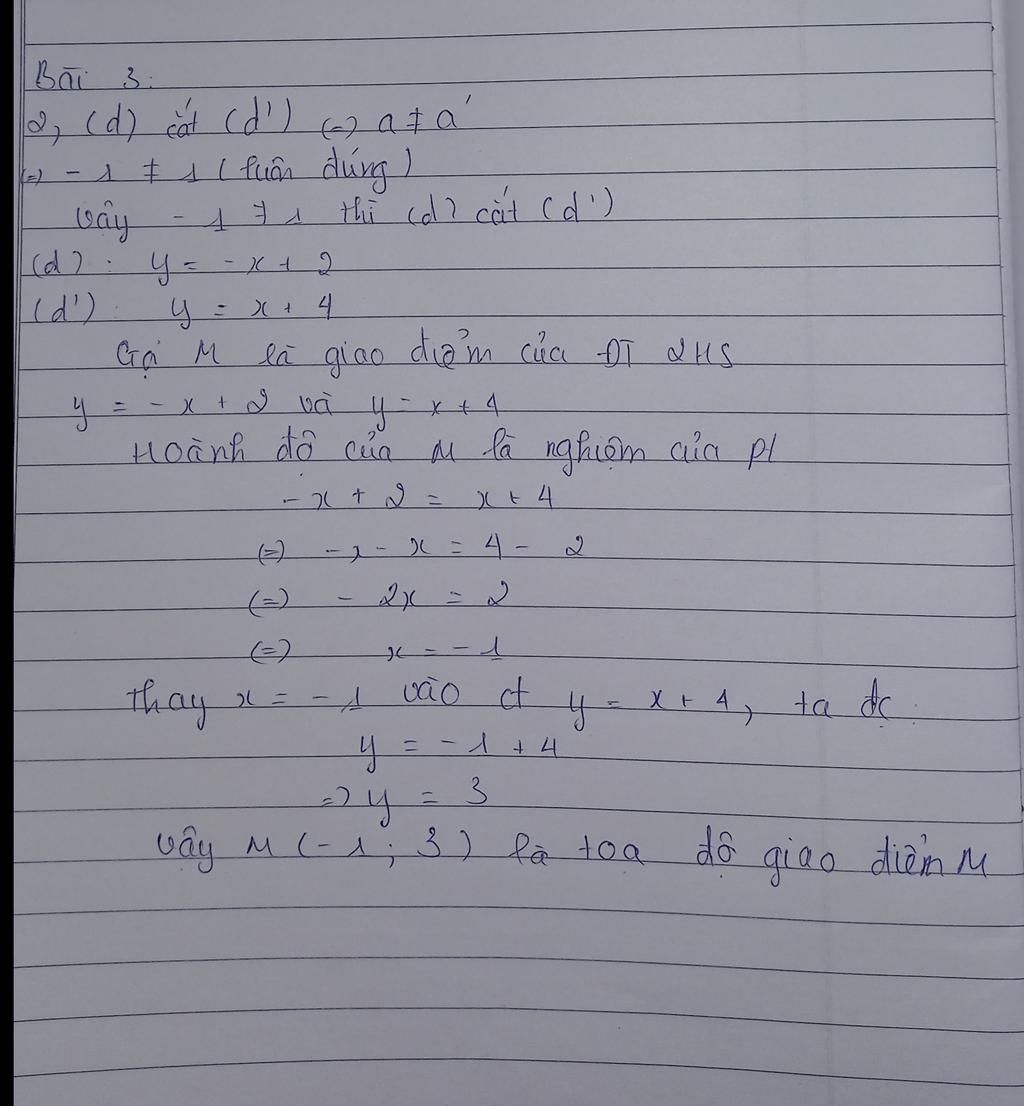 Bài 3:
2, (d) cắt (d') (=) a ≠ a'
(=) - 1 ≠ 1 (luôn đúng)
Vậy - 1 ≠ 1 thì (d) cắt (d')
(d): y = -x + 2
(d'): y = x + 4
Gọi M là giao điểm của ĐT 2HS
y = - x + 2 và y = x + 4
Hoành độ của M là nghiệm của pt
-x + 2 = x + 4
(=) -x - x = 4 - 2
(=) - 2x = 2
(=) x = - 1
Thay x = - 1 vào ct y = x + 4, ta đc
y = - 1 + 4
=) y = 3
Vậy M (- 1; 3) là toạ độ giao điểm M